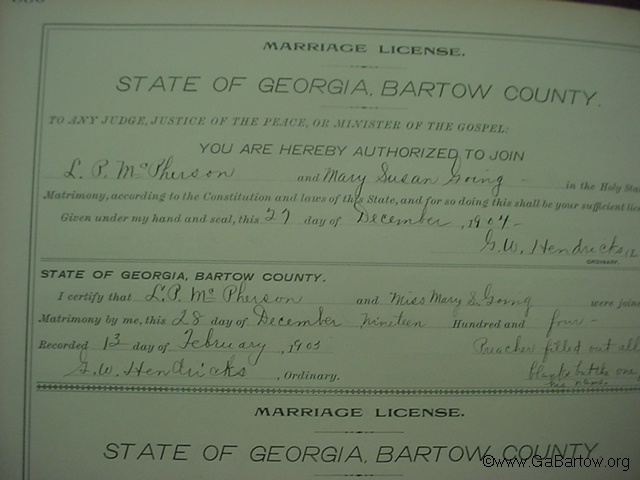 MARRIAGE LICENSE.
STATE OF GEORGIA, BARTOW COUNTY.
TO ANY JUDGE, JUSTICE OF THE PEACE, OR MINISTER OF THE GOSPEL:
YOU ARE HEREBY AUTHORIZED TO JOIN
L. P. McPherson and Mary Susan Going in the Holy Sta
Matrimony, according to the Constitution and laws of this State, and for so doing this shall be your sufficient lice
Given under my hand and seal, this 27 day of December, 1904
G. W. Hendricks, (L
ORDINARY.
STATE OF GEORGIA, BARTOW COUNTY.
I certify that L. P. McPherson and Miss Mary S. Going were joine
Matrimony by me, this 28 day of December Nineteen Hundred and four
Recorded 13 day of February, 1905 Preacher filled out all
G. W. Hendricks, Ordinary. blanks but the one
his name.
MARRIAGE LICENSE.
STATE OF GEORGIA, BARTOW COUNTY.
©www.GaBartow.org